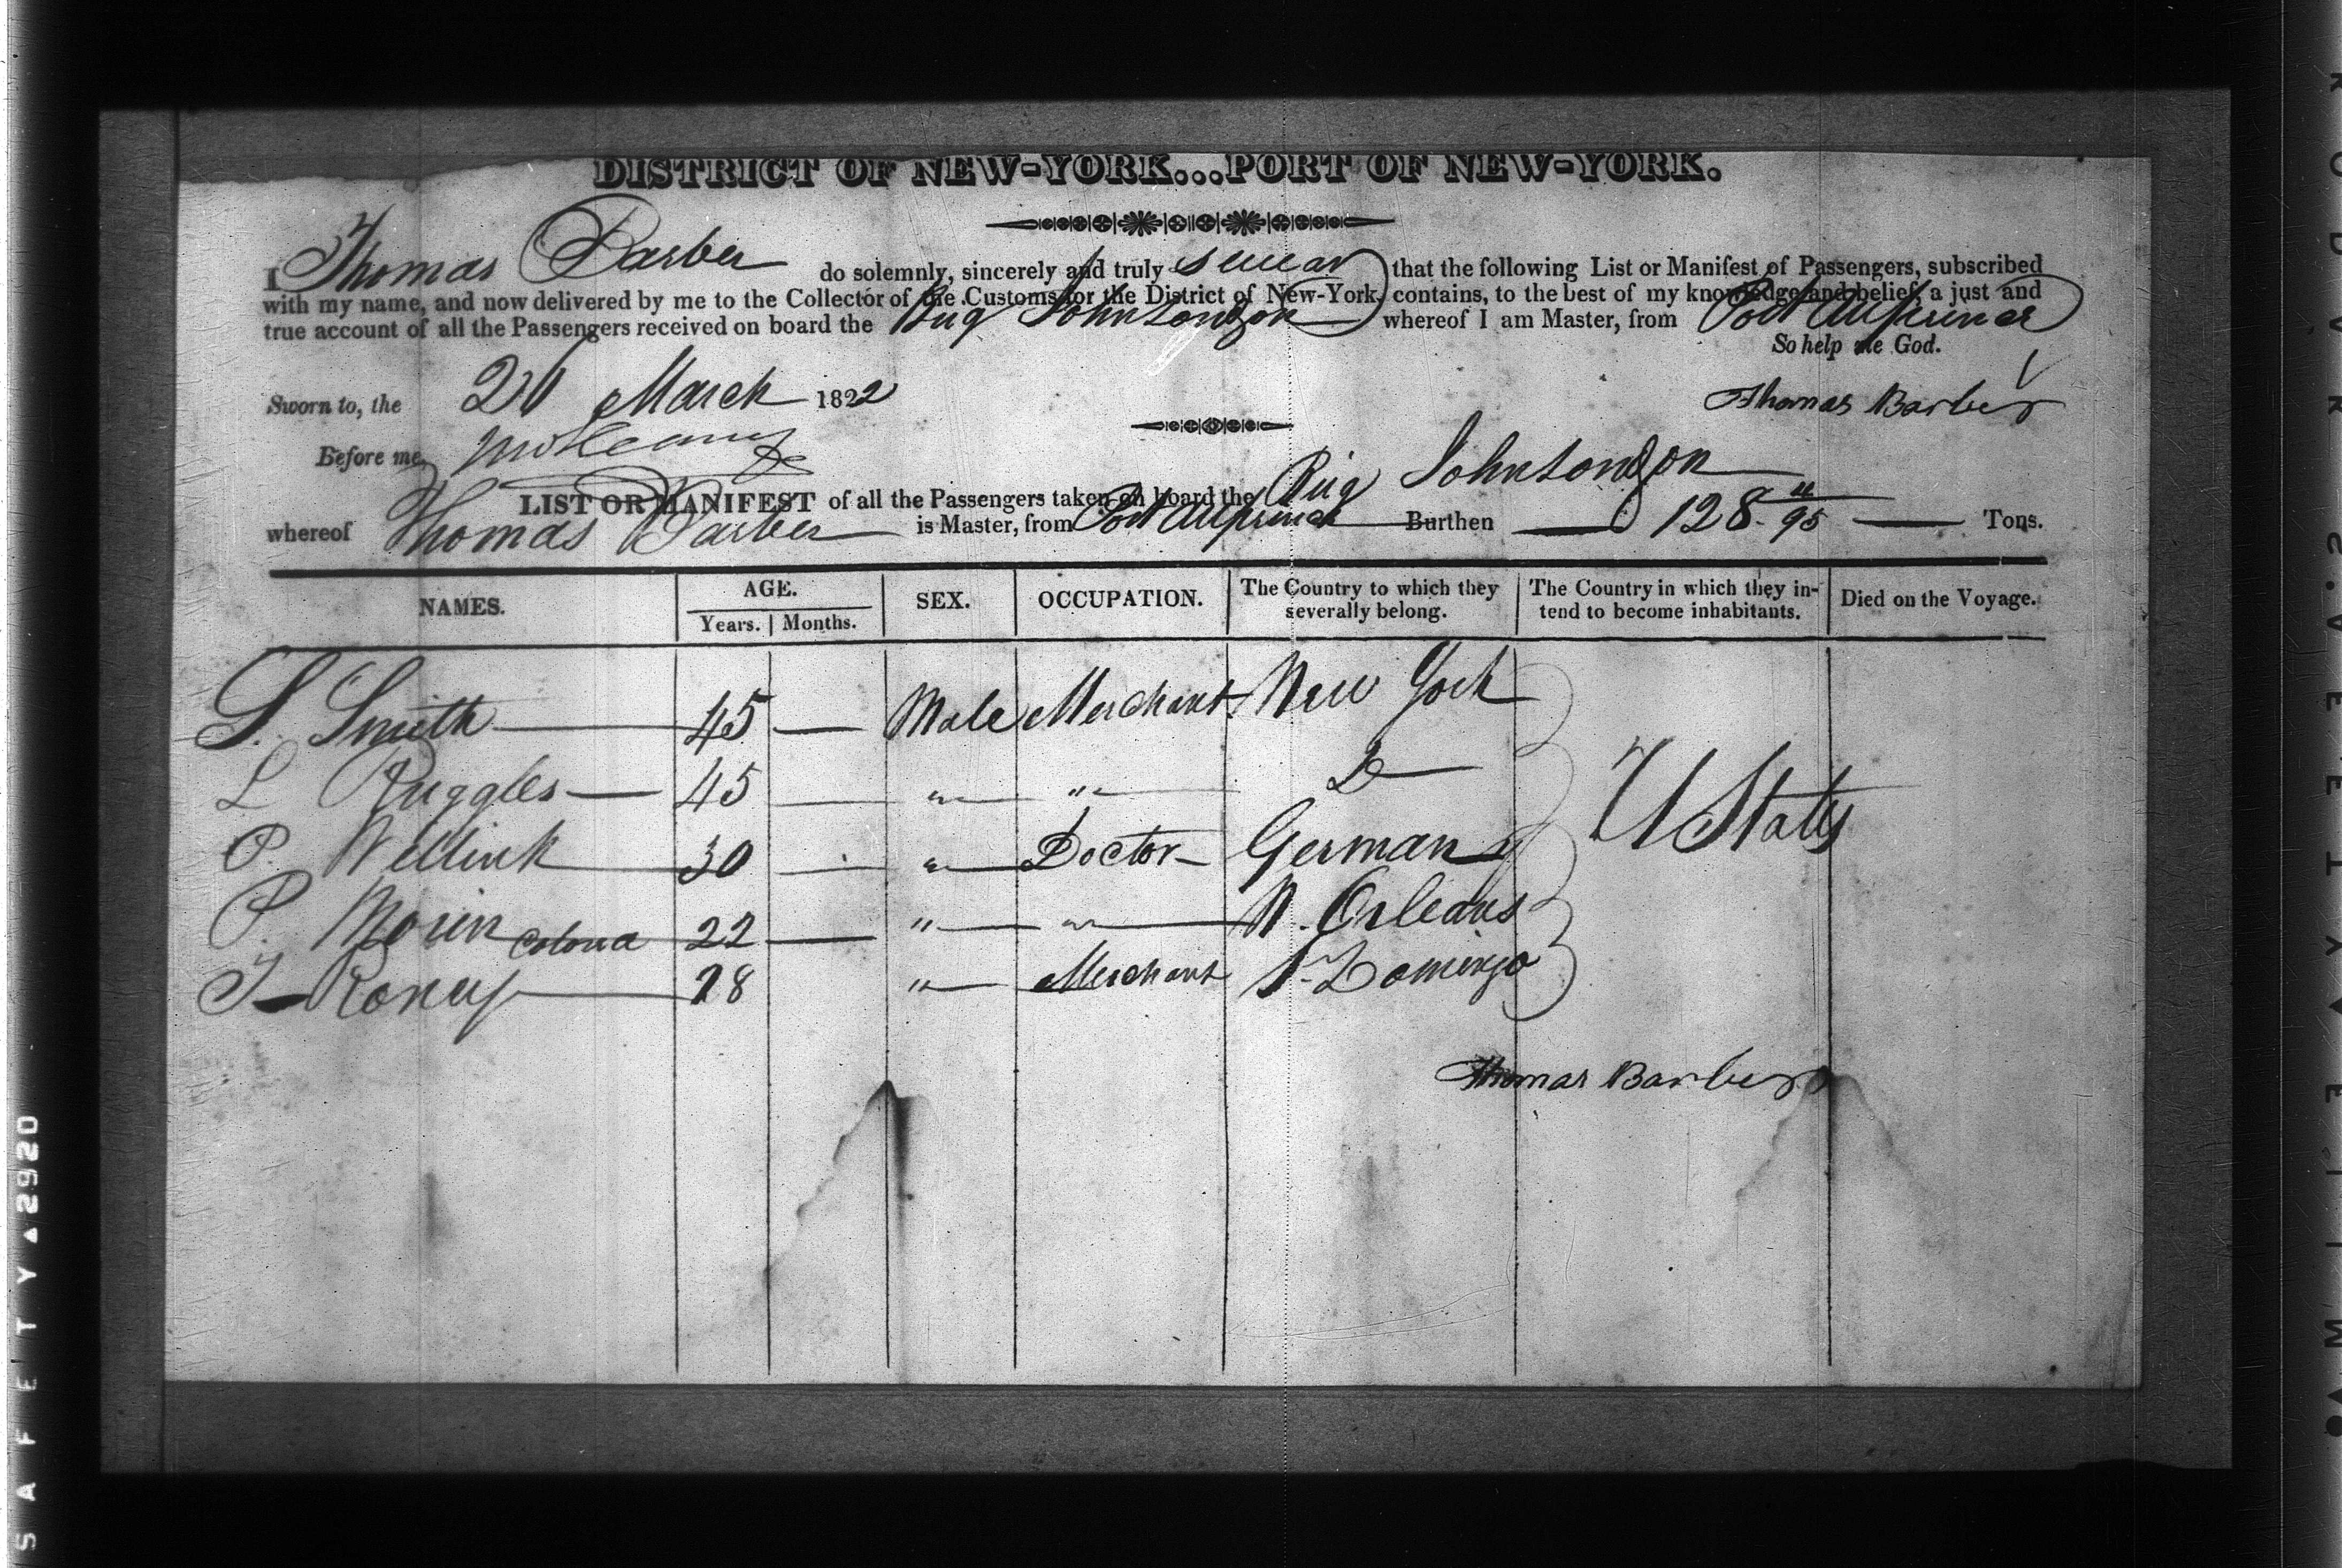 DISTRICT OF NEW-YORK...PORT OF NEW-YORK.
I Thomas Barber do solemnly, sincerely and truly swear that the following List or Manifest of Passengers, subscribed
with my name, and now delivered by me to the Collector of the Customs for the District of New-York, contains, to the best of my knowledge and belief, a just and
true account of all the Passengers received on board the Brig whereof I am Master, from Port
So help me God.
Sworn to, the March 1822
Thomas Barber
Before me,
LIST OR MANIFEST of all the Passengers taken on board the Brig
whereof Thomas Barber is Master, from Port Burthen 128 95 Tons.
NAMES. AGE. SEX. OCCUPATION. The Country to which they severally belong. The Country in which they intend to become inhabitants. Died on the Voyage.
Years. Months.
S. Smith 45 — Male Merchant New York
L Ruggles 45 — " " Do
P. Wellink 30 — " Doctor Germany U States
P. Morin 22 — " " N. Orleans
28 " Merchant St. Domingo
Thomas Barber
SAFETY ▲ 2920